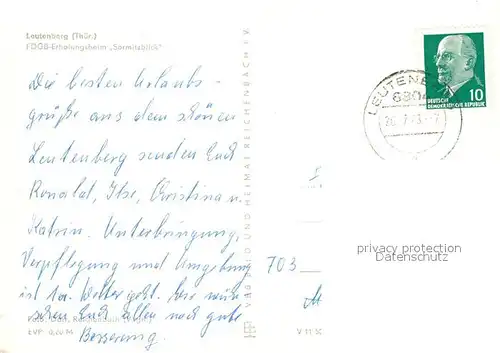 Leutenberg (Thür.)
FDGB-Erholungsheim „Sormitzblick“
Die besten Urlaubs-
grüße aus dem schönen
Leutenberg senden Euch
Ronald, Ilse, Christina u.
Katrin. Unterbringung,
Verpflegung und Umgebung
ist 1a. Wetter geht. Wir wün-
schen Euch allen noch gute
Besserung.
EVP 0,20 M
VEB BILD UND HEIMAT REICHENBACH i. V.
V 11
LEUTENBE
DEUTSCHE
DEMOKRATISCHE REPUBLIK
10
703
privacy protection
Datenschutz